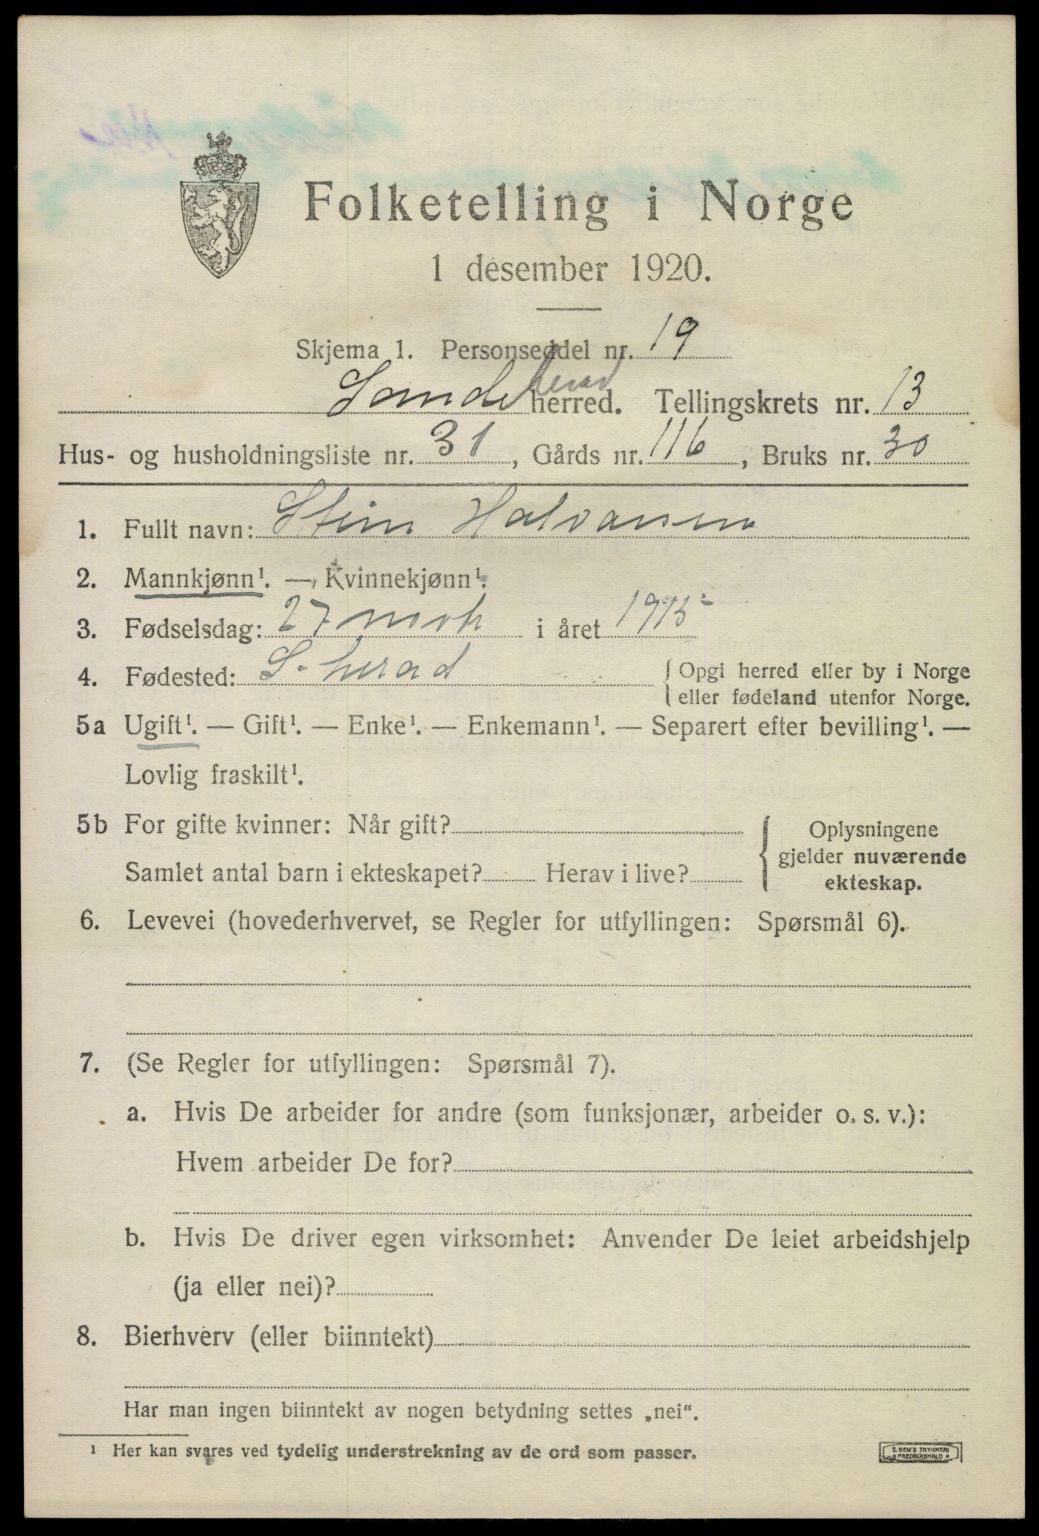 Folketelling i Norge
1 desember 1920.
Skjema 1. Personseddel nr. 19
Sandeherad herred. Tellingskrets nr. 13
Hus- og husholdningsliste nr. 31, Gårds nr. 116, Bruks nr. 30
1. Fullt navn: Stein Halvorsen
2. Mannkjønn¹. — Kvinnekjønn¹.
3. Fødselsdag: 27 i året 1915
4. Fødested: S. herad { Opgi herred eller by i Norge
eller fødeland utenfor Norge.
5a Ugift¹. — Gift¹. — Enke¹. — Enkemann¹. — Separert efter bevilling¹. —
Lovlig fraskilt¹.
5b For gifte kvinner: Når gift?
Samlet antal barn i ekteskapet? Herav i live?
{ Oplysningene
gjelder nuværende
ekteskap.
6. Levevei (hovederhvervet, se Regler for utfyllingen: Spørsmål 6).
7. (Se Regler for utfyllingen: Spørsmål 7).
a. Hvis De arbeider for andre (som funksjonær, arbeider o. s. v.):
Hvem arbeider De for?
b. Hvis De driver egen virksomhet: Anvender De leiet arbeidshjelp
(ja eller nei)?
8. Bierhverv (eller biinntekt)
Har man ingen biinntekt av nogen betydning settes „nei".
¹ Her kan svares ved tydelig understrekning av de ord som passer.